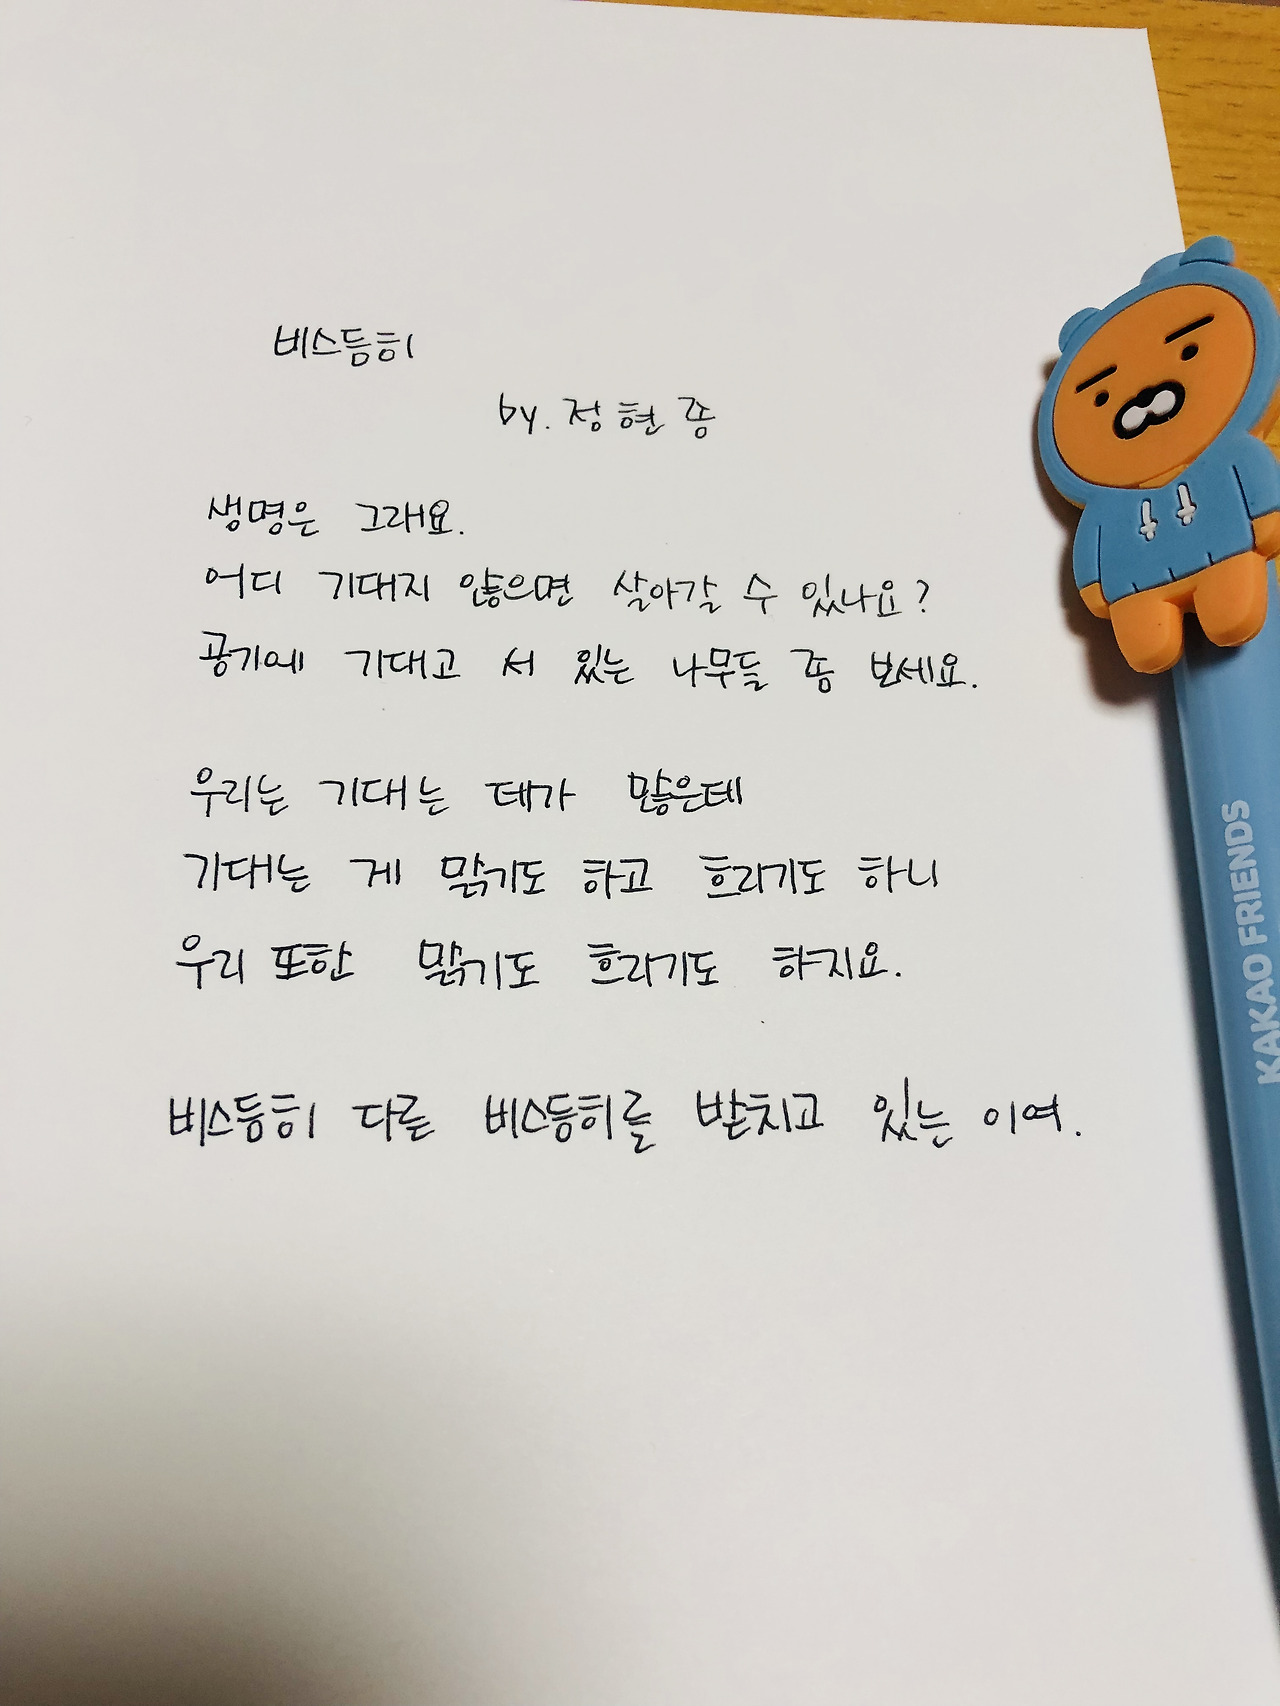 비스듬히
by. 정현종
생명은 그래요.
어디 기대지 않으면 살아갈 수 있나요?
공기에 기대고 서 있는 나무들 좀 보세요.
우리는 기대는 데가 많은데
기대는 게 맑기도 하고 흐리기도 하니
우리 또한 맑기도 흐리기도 하지요.
비스듬히 다른 비스듬히를 받치고 있는 이여.
KAKAO FRIENDS